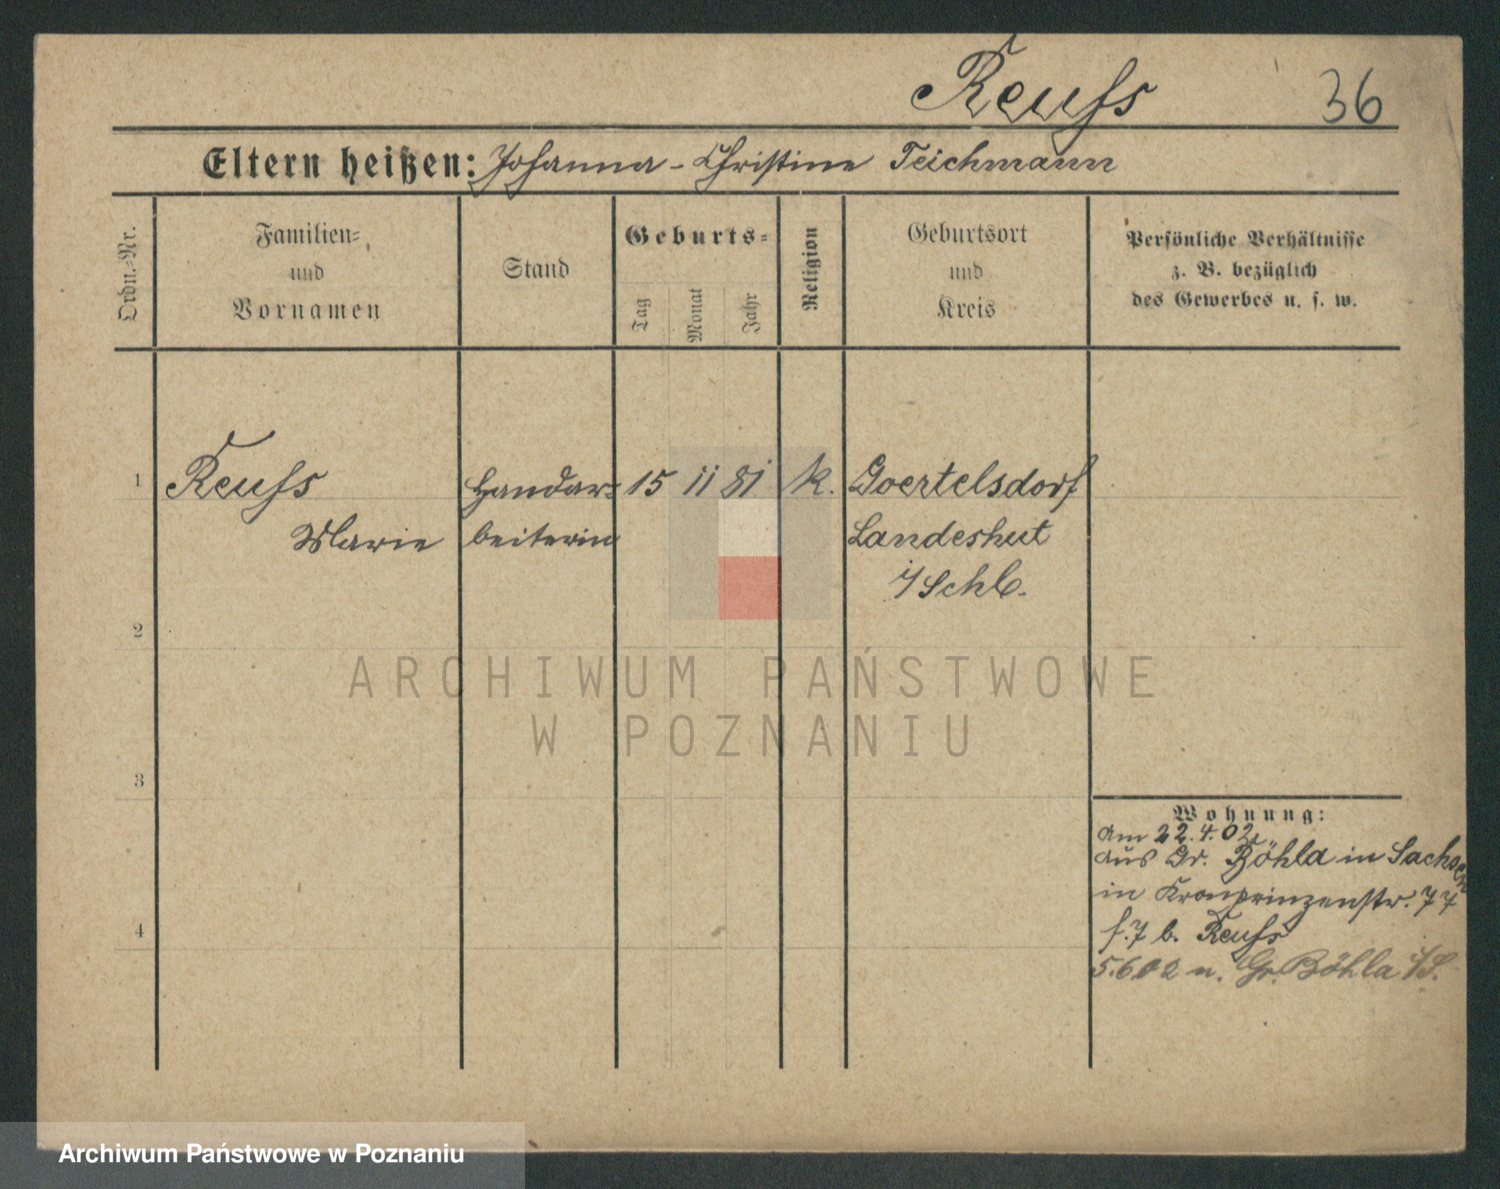 Reuſs 36
Eltern heißen: Johanna - Christine Teichmann
Ordn.-Nr.
Familien-
und
Vornamen
Stand
Geburts-
Tag
Monat
Jahr
Religion
Geburtsort
und
Kreis
Persönliche Verhältnisse
z. B. bezüglich
des Gewerbes u. s. w.
1 Reuſs Handar- 15 11 81 k. Goertelsdorf
Marie beiterin Landeshut
i/Schl.
2
3
4
Wohnung:
am 22.4.02
aus Gr. Böhla in Sachsen
in Kronprinzenstr. 77
b. Reuſs
5.6.02 n. Gr. Böhla i/S.
ARCHIWUM PAŃSTWOWE
W POZNANIU
Archiwum Państwowe w Poznaniu